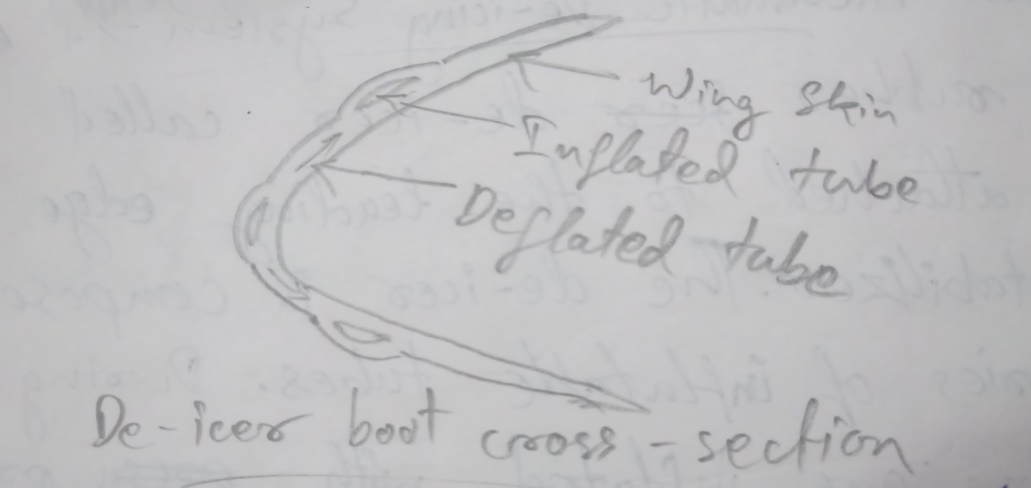 Wing Skin
Inflated tube
Deflated tube
De-icer boot cross-section